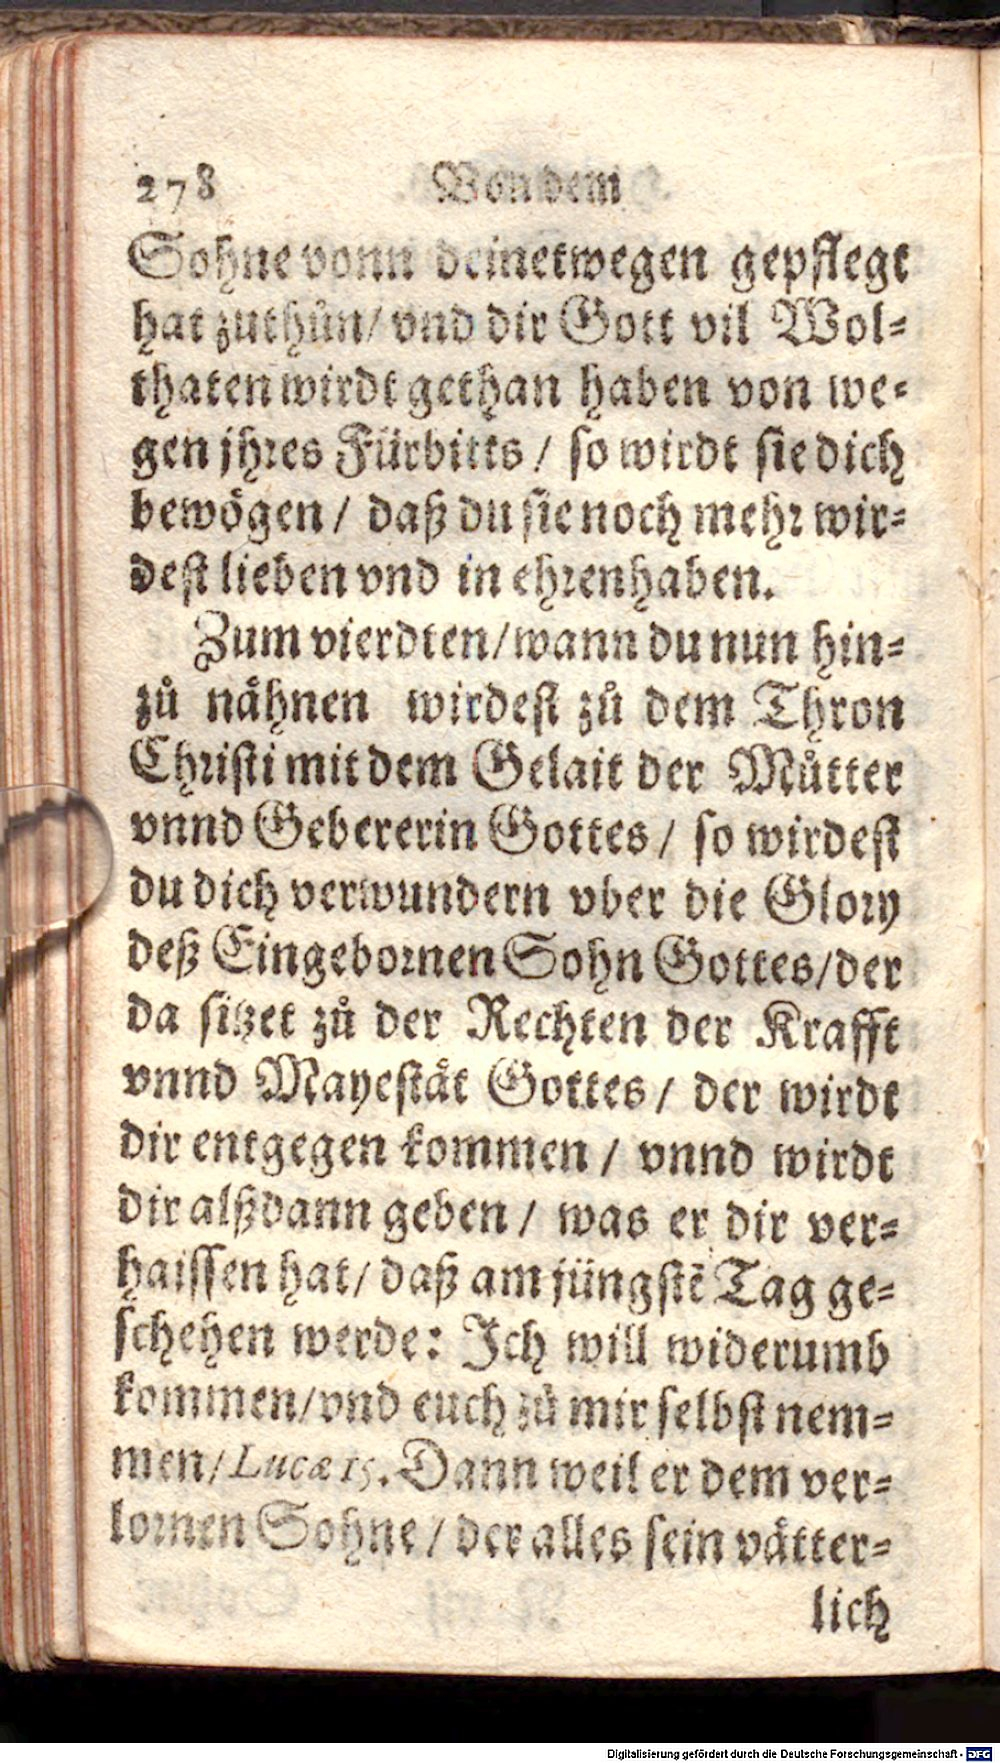 278 Von dem
Sohne vonn deinetwegen gepflegt
hat zuthůn/ vnd dir Gott vil Wol-
thaten wirdt gethan haben von we-
gen jhres Fürbitts / so wirdt sie dich
bewögen / daß du sie noch mehr wir-
dest lieben vnd in ehrenhaben.
Zum vierdten/wann du nun hin-
zů nåhnen wirdest zů dem Thron
Christi mit dem Gelait der Můtter
vnnd Gebererin Gottes / so wirdest
du dich verwundern vber die Glory
deß Eingebornen Sohn Gottes/der
da sitzet zů der Rechten der Krafft
vnnd Mayeståt Gottes / der wirdt
dir entgegen kommen / vnnd wirdt
dir alßdann geben / was er dir ver-
haissen hat/ daß am jüngstē Tag ge-
schehen werde: Ich will widerumb
kommen/vnd euch zů mir selbst nem-
men/Lucæ 15. Dann weil er dem ver-
lornen Sohne / der alles sein våtter-
lich
Digitalisierung gefördert durch die Deutsche Forschungsgemeinschaft - DFG